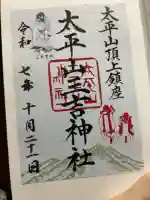 太平山頂上鎮座
太平山三吉神社
令和七年十月二十一日